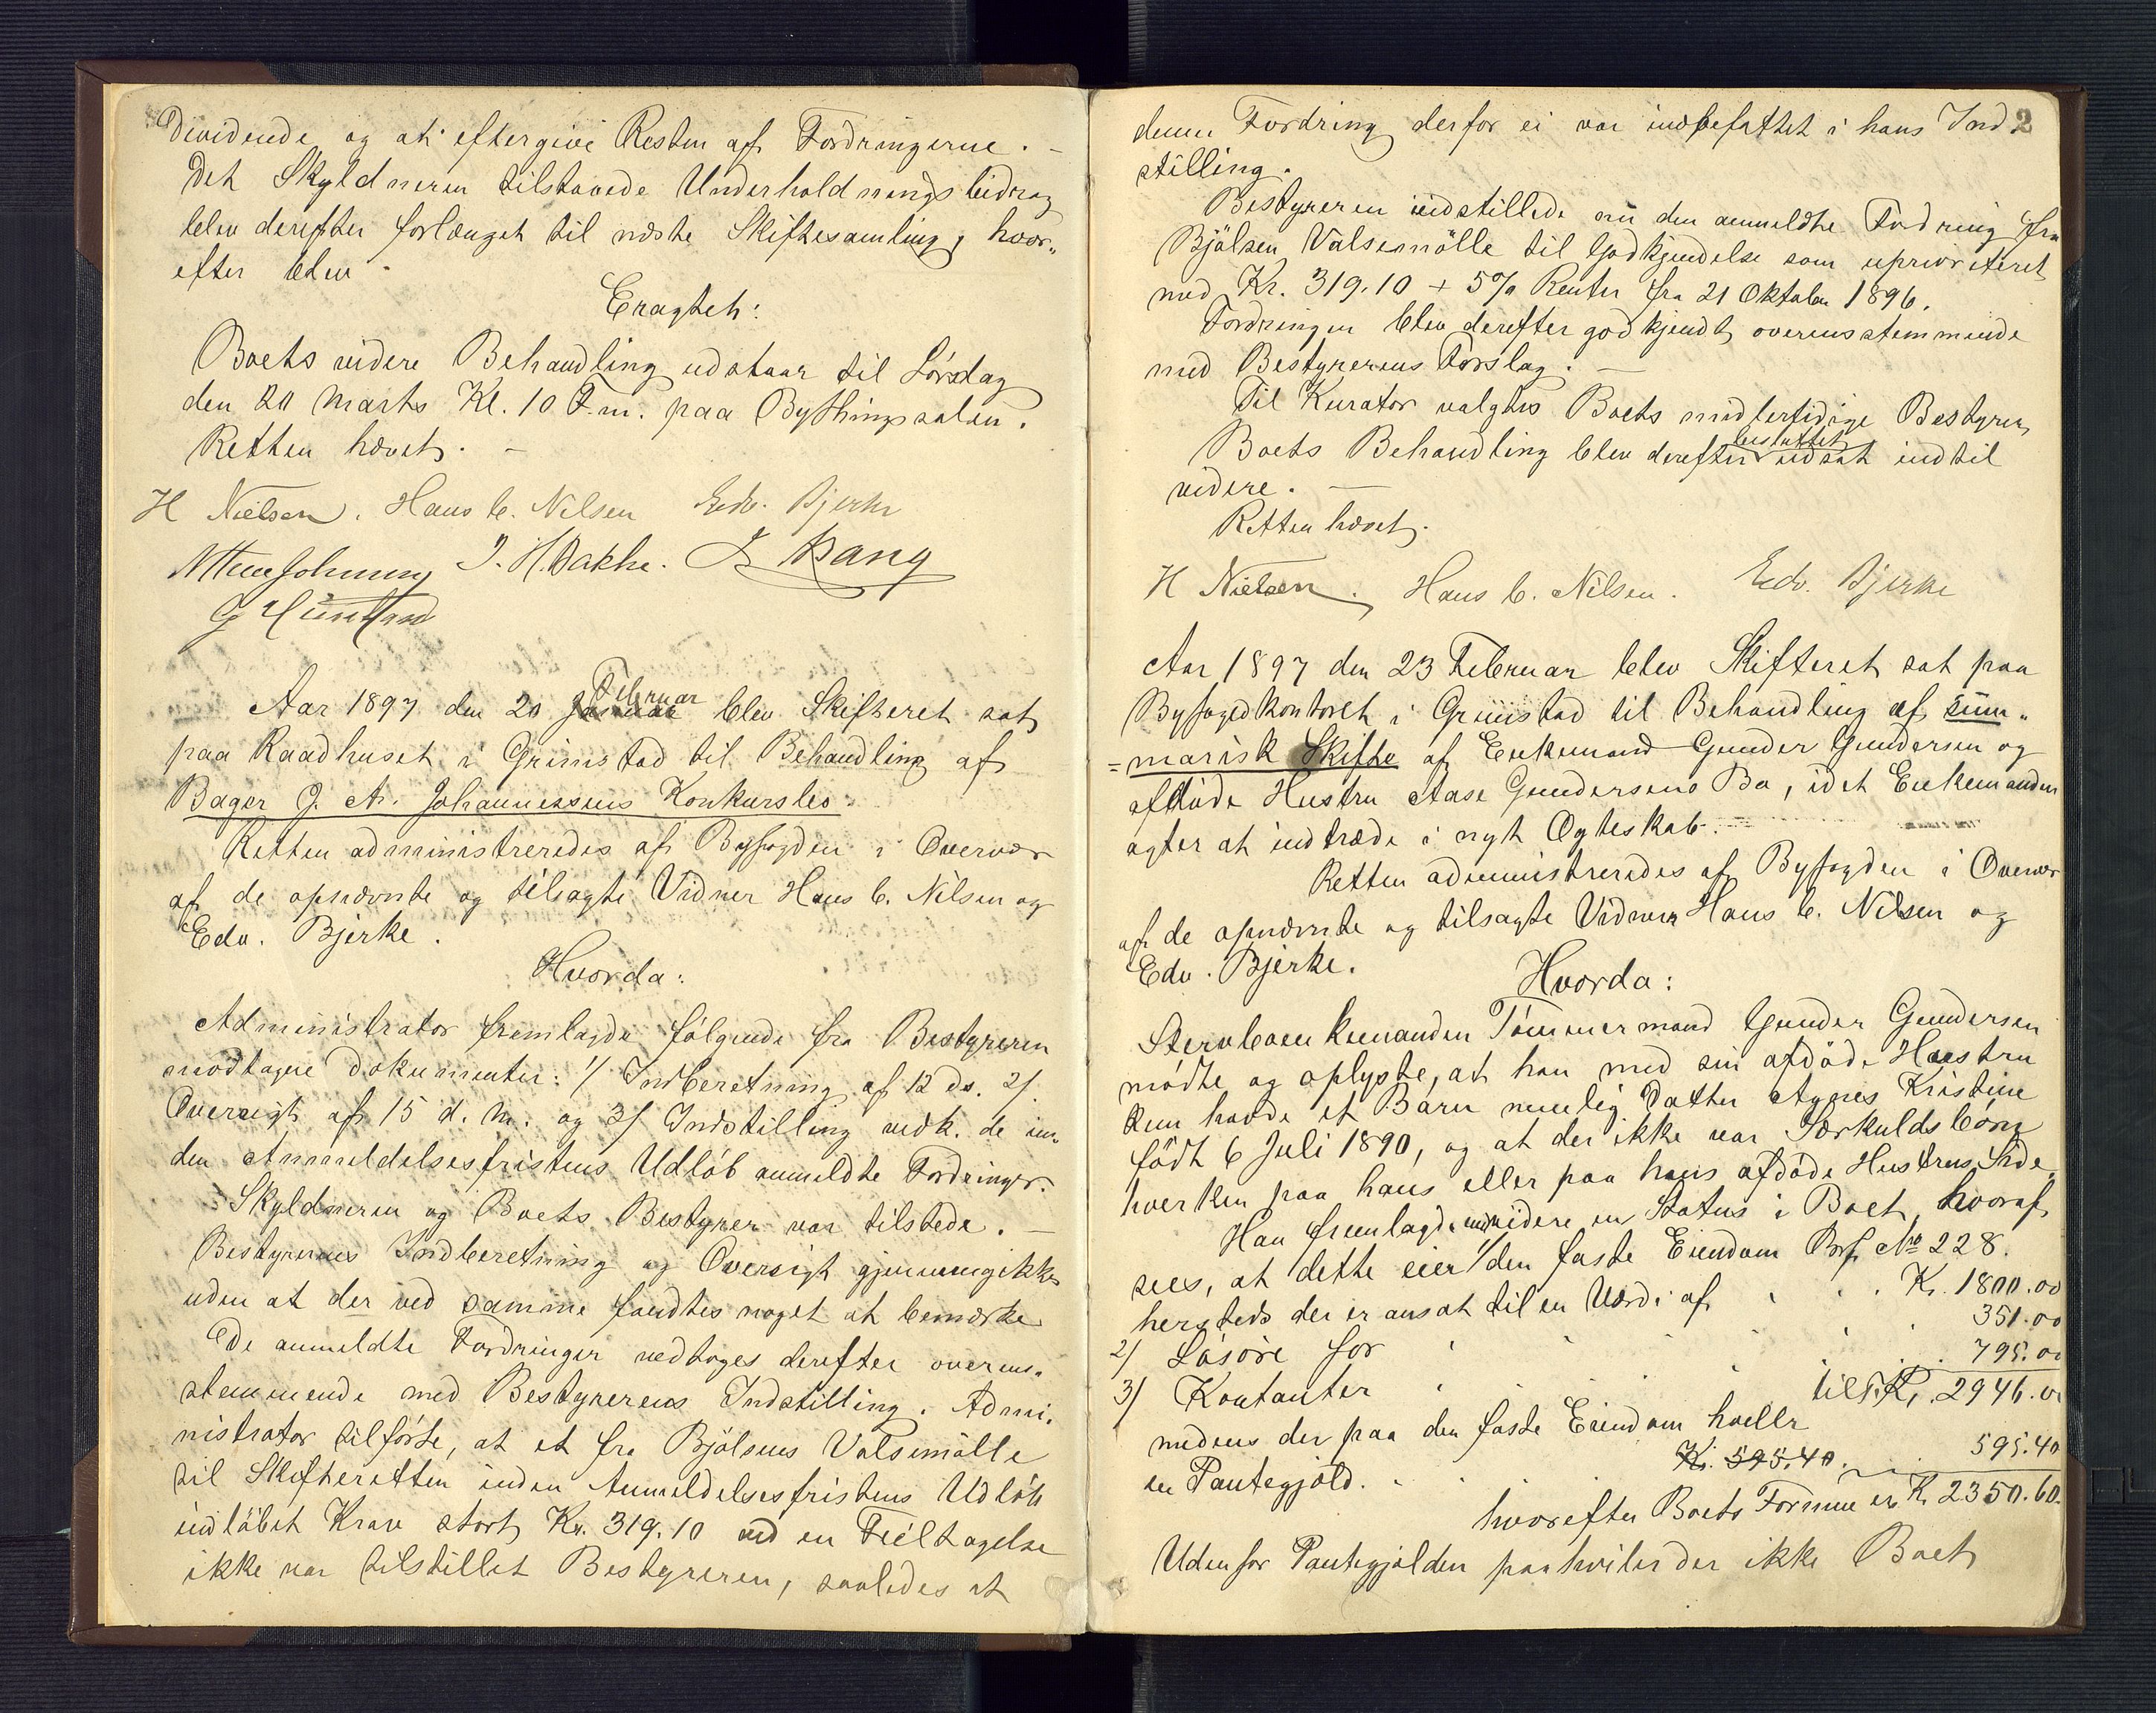 Dividende og at eftergive Resten af Fordringerne. —
Det Skyldneren tilstaaede Underholdningsbidrag
blev derefter forlænget til næste Skiftesamling, hvor„
efter blev
Eragtet:
Boets videre Behandling udstaar til Lørdag
den 20 Marts Kl. 10 F.m. paa Bythingssalen.
Retten hævet. —
H Nielsen. Hans C. Nilsen Edv. Bjerke
J. H. Bakke. Bang
Aar 1897 den 20 Januar Februar blev Skifteret sat
paa Raadhuset i Grimstad til Behandling af
Bager J. A. Johannessens Konkursbo.
Retten administreredes af Byfogden i Overvær
af de opnævnte og tilsagte Vidner Hans C. Nilsen og
Edv. Bjerke.
Hvorda:
Administrator fremlagde følgende fra Bestyreren
modtagne Dokumenter: 1/ Indberetning af 12 ds. 2/
Oversigt af 15 d. M. og 3/ Indstilling vedk. de in„
den Anmeldelsesfristens Udløb anmeldte Fordringer.
Skyldneren og Boets Bestyrer var tilstede. —
Bestyrerens Indberetning og Oversigt gjennemgikkes
uden at der ved samme fandtes noget at bemærke
De anmeldte Fordringer vedtoges derefter overens„
stemmende med Bestyrerens Indstilling. Admi„
nistrator tilførte, at et fra Bjölsens Valsemölle
til Skifteretten inden Anmeldelsesfristens Udløb
indløbet Krav stort Kr. 319.10 ved en Feiltagelse
ikke var tilstillet Bestyreren, saaledes at
2
denne Fordring derfor ei var indbefattet i hans Ind
stilling.
Bestyreren indstillede nu den anmeldte Fordring fra
Bjölsen Valsemölle til Godkjendelse som uprioriteret
med Kr. 319.10 + 5% Renter fra 21 Oktober 1896.
Fordringen blev derefter godkjendt overensstemmende
med Bestyrerens Forslag. —
Til Kurator valgtes Boets midlertidige Bestyrer
Boets Behandling blev derefter besluttet udsat indtil
videre. —
Retten hævet.
H Nielsen. Hans C. Nilsen. Edv. Bjerke
Aar 1897 den 23 Februar blev Skifteret sat paa
Byfogedkontoret i Grimstad til Behandling af sum„
=marisk Skifte af Enkemand Gunder Gundersen og
afdøde Hustru Aase Gundersens Bo, idet Enkemanden
agter at indtræde i nyt Ægteskab.
Retten administreredes af Byfogden i Overvær
af de opnævnte og tilsagte Vidner Hans C. Nilsen og
Edv. Bjerke.
Hvorda:
Stervboenkemanden Tømmermand Gunder Gundersen
mødte og oplyste, at han med sin afdøde Hustru
kun havde et Barn nemlig Datter Agnes Kristine
født 6 Juli 1890, og at der ikke var Særkuldsbørn
hverken paa hans eller paa hans afdøde Hustrus Side.
Han fremlagde endvidere en Status i Boet, hvoraf
sees, at dette eier 1/ den faste Eiendom Brf. No 228.
hersteds der er ansat til en Værdi af . . . Kr. 1800.00
2/ Løsøre for . . . . 351.00
3/ Kontanter . . . . 795.00
tils. Kr. 2946.00
medens der paa den faste Eiendom hviler
en Pantegjæld. . . Kr. 595.40. . 595.40
hvorefter Boets Formue er Kr 2350.60.
Udenfor Pantegjælden paahviler der ikke Boet